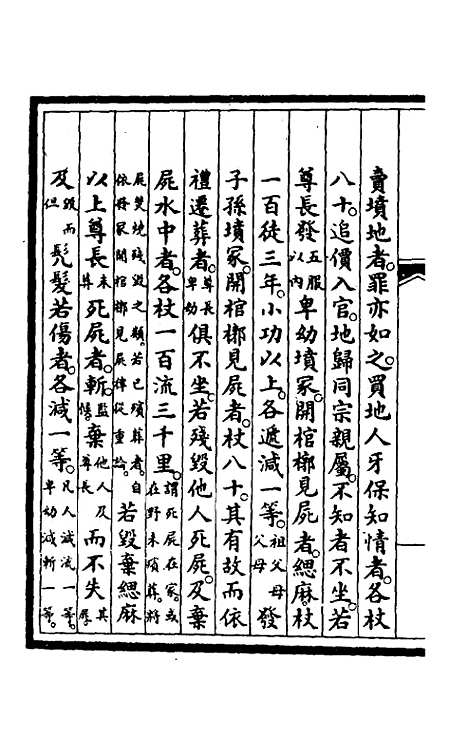 賣墳地者。罪亦如之。買地人牙保知情者。各杖
八十。追價入官。地歸同宗親屬。不知者不坐。若
尊長發五服以內卑幼墳冢。開棺槨見屍者。緦麻。杖
一百徒三年。小功以上。各遞減一等。祖父母父母發
子孫墳冢。開棺槨見屍者。杖八十。其有故而依
禮遷葬者。尊長卑幼俱不坐。若殘毀他人死屍。及棄
屍水中者。各杖一百流三千里。謂死屍在家。或在野未殯葬。將
屍焚燒殘毀之類。若已殯葬者。自依發冢開棺槨見屍律從重論。若毀棄緦麻
以上尊長未葬死屍者。斬監候。棄他人及尊長而不失其屍
及毀而但髠髮若傷者。各減一等。凡人減流一等。卑幼減斬一等。